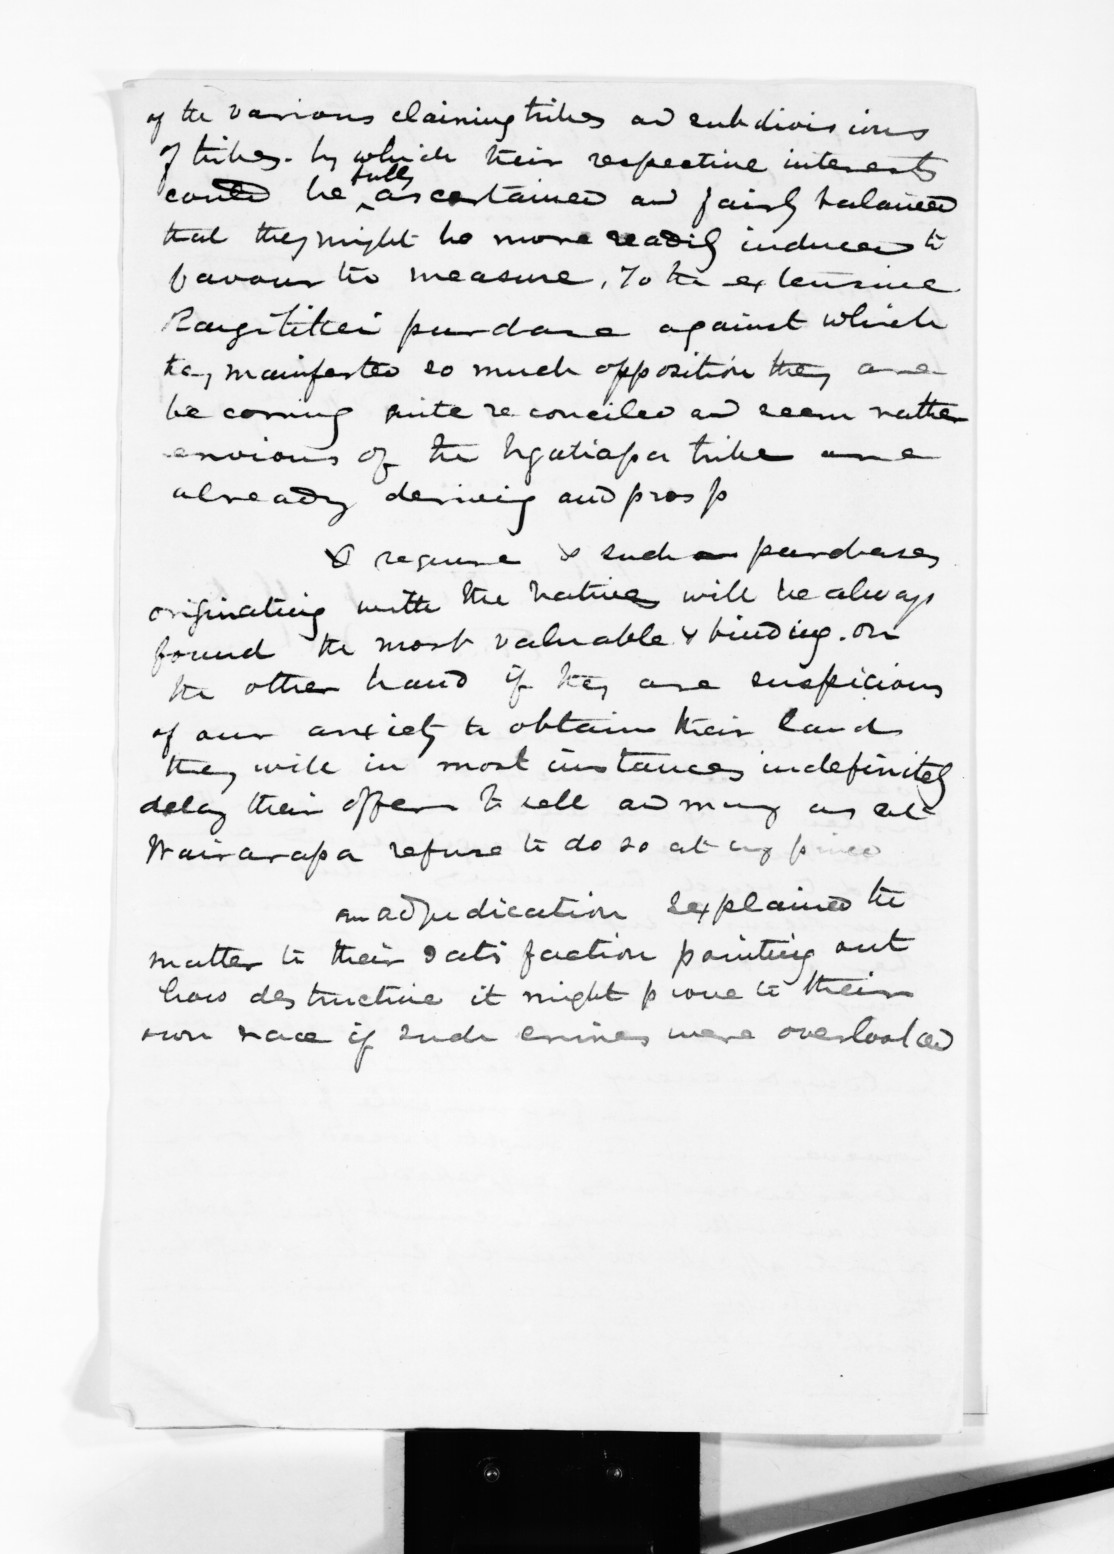 of the various claiming tribes and subdivisions
of tribes. by which their respective interests
could be fully ascertained and fairly balanced
that they might be more readily induced to
favour the measure. To the extensive
Rangitikei purchase against which
they manifested so much opposition they are
becoming quite reconciled and seem rather
envious of the Ngatiapa tribe are
already deriving and prosp
& require & such purchases
originating with the Natives will be always
found the most valuable & binding. on
the other hand if they are suspicious
of our anxiety to obtain their lands
they will in most instances indefinitely
delay their offers to sell and many as at
Wairarapa refuse to do so at any price
an adjudication explained the
matter to their satisfaction pointing out
how destructive it might prove to their
own race if such crimes were overlooked